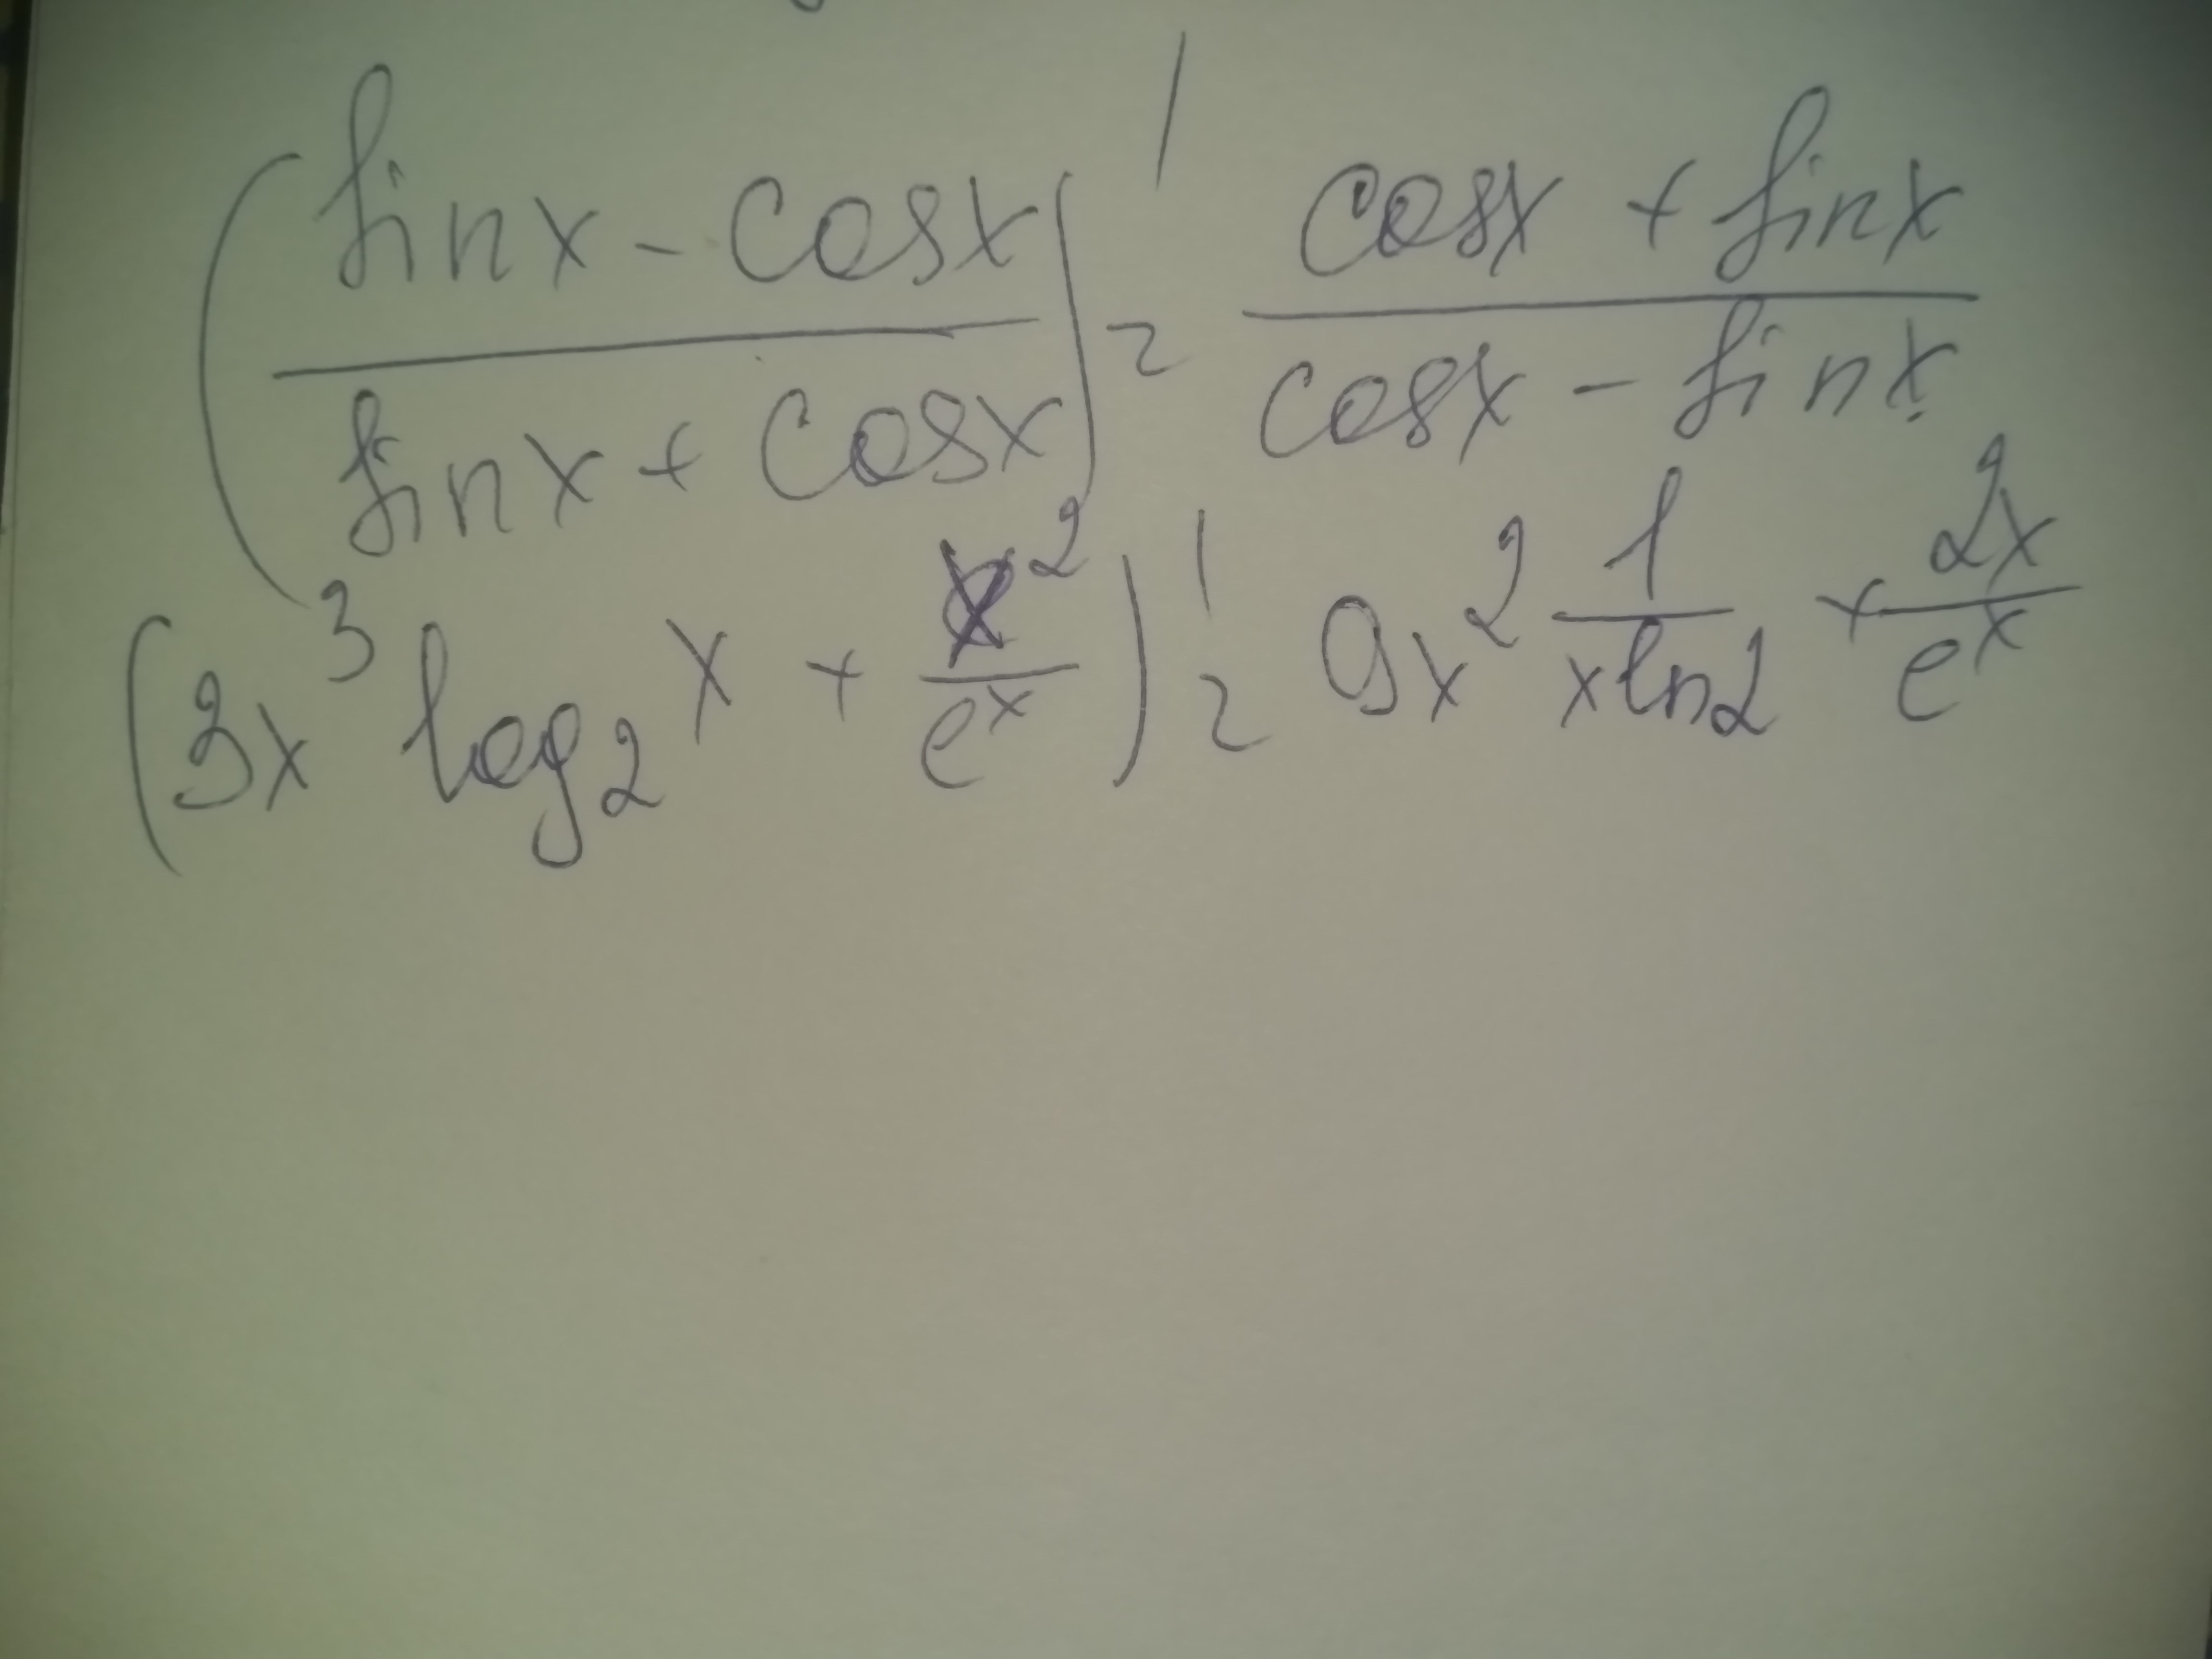 (sinx - cosx / sinx + cosx)' = cosx + sinx / cosx - sinx
(3x³ log₂x + x²/eˣ)' = 9x² 1/xln2 + 2x/eˣ